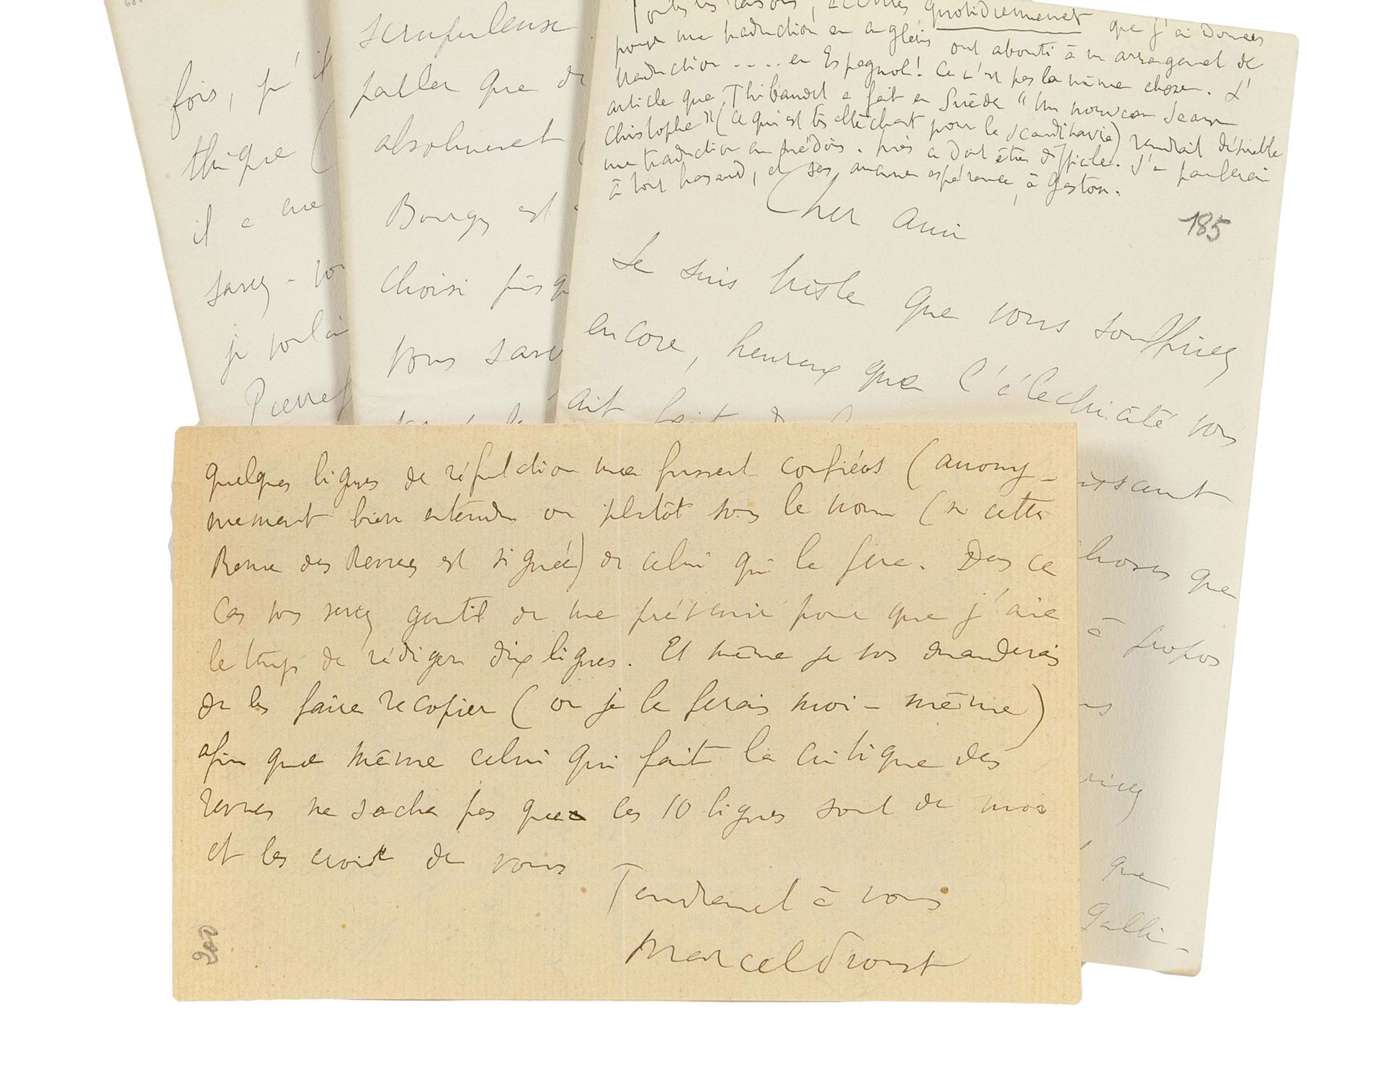 fois, j'
thique (
il a
savez-vo
je voulai
Pierre
scrupuleuse
parler que de
absolument (
Bourges est
choisi puisq
vous save
Toutes les raisons, quotidiennement que j'ai données
pour une traduction en anglais ont abouti à un arrangement de
traduction .... en Espagnol! Ce n'est pas la même chose. L'
article que Thibaudet a fait en Suède "Un nouveau Jean
Christophe" (ce qui est très alléchant pour la Scandinavie) rendrait désirable
une traduction en suédois. mais ce doit être difficile. J'en parlerai
à tout hasard, et sans aucune espérance, à Gaston.
Cher ami
185
Je suis triste que vous souffriez
encore, heureux que l'électricité vous
ait fait
issant
choses que
à propos
que
Galli-
quelques lignes de réfutation me fussent confiées (anony-
mement bien entendu ou plutôt sous le nom (si cette
Revue des Revues est signée) de celui qui la fera. Dans ce
cas vous serez gentil de me prévenir pour que j'aie
le temps de rédiger dix lignes. Et même je vous demanderais
de les faire recopier (ou je le ferais moi-même)
afin que même celui qui fait la critique des
revues ne sache pas que les 10 lignes sont de moi
et les croie de vous
Tendrement à vous
Marcel Proust
200